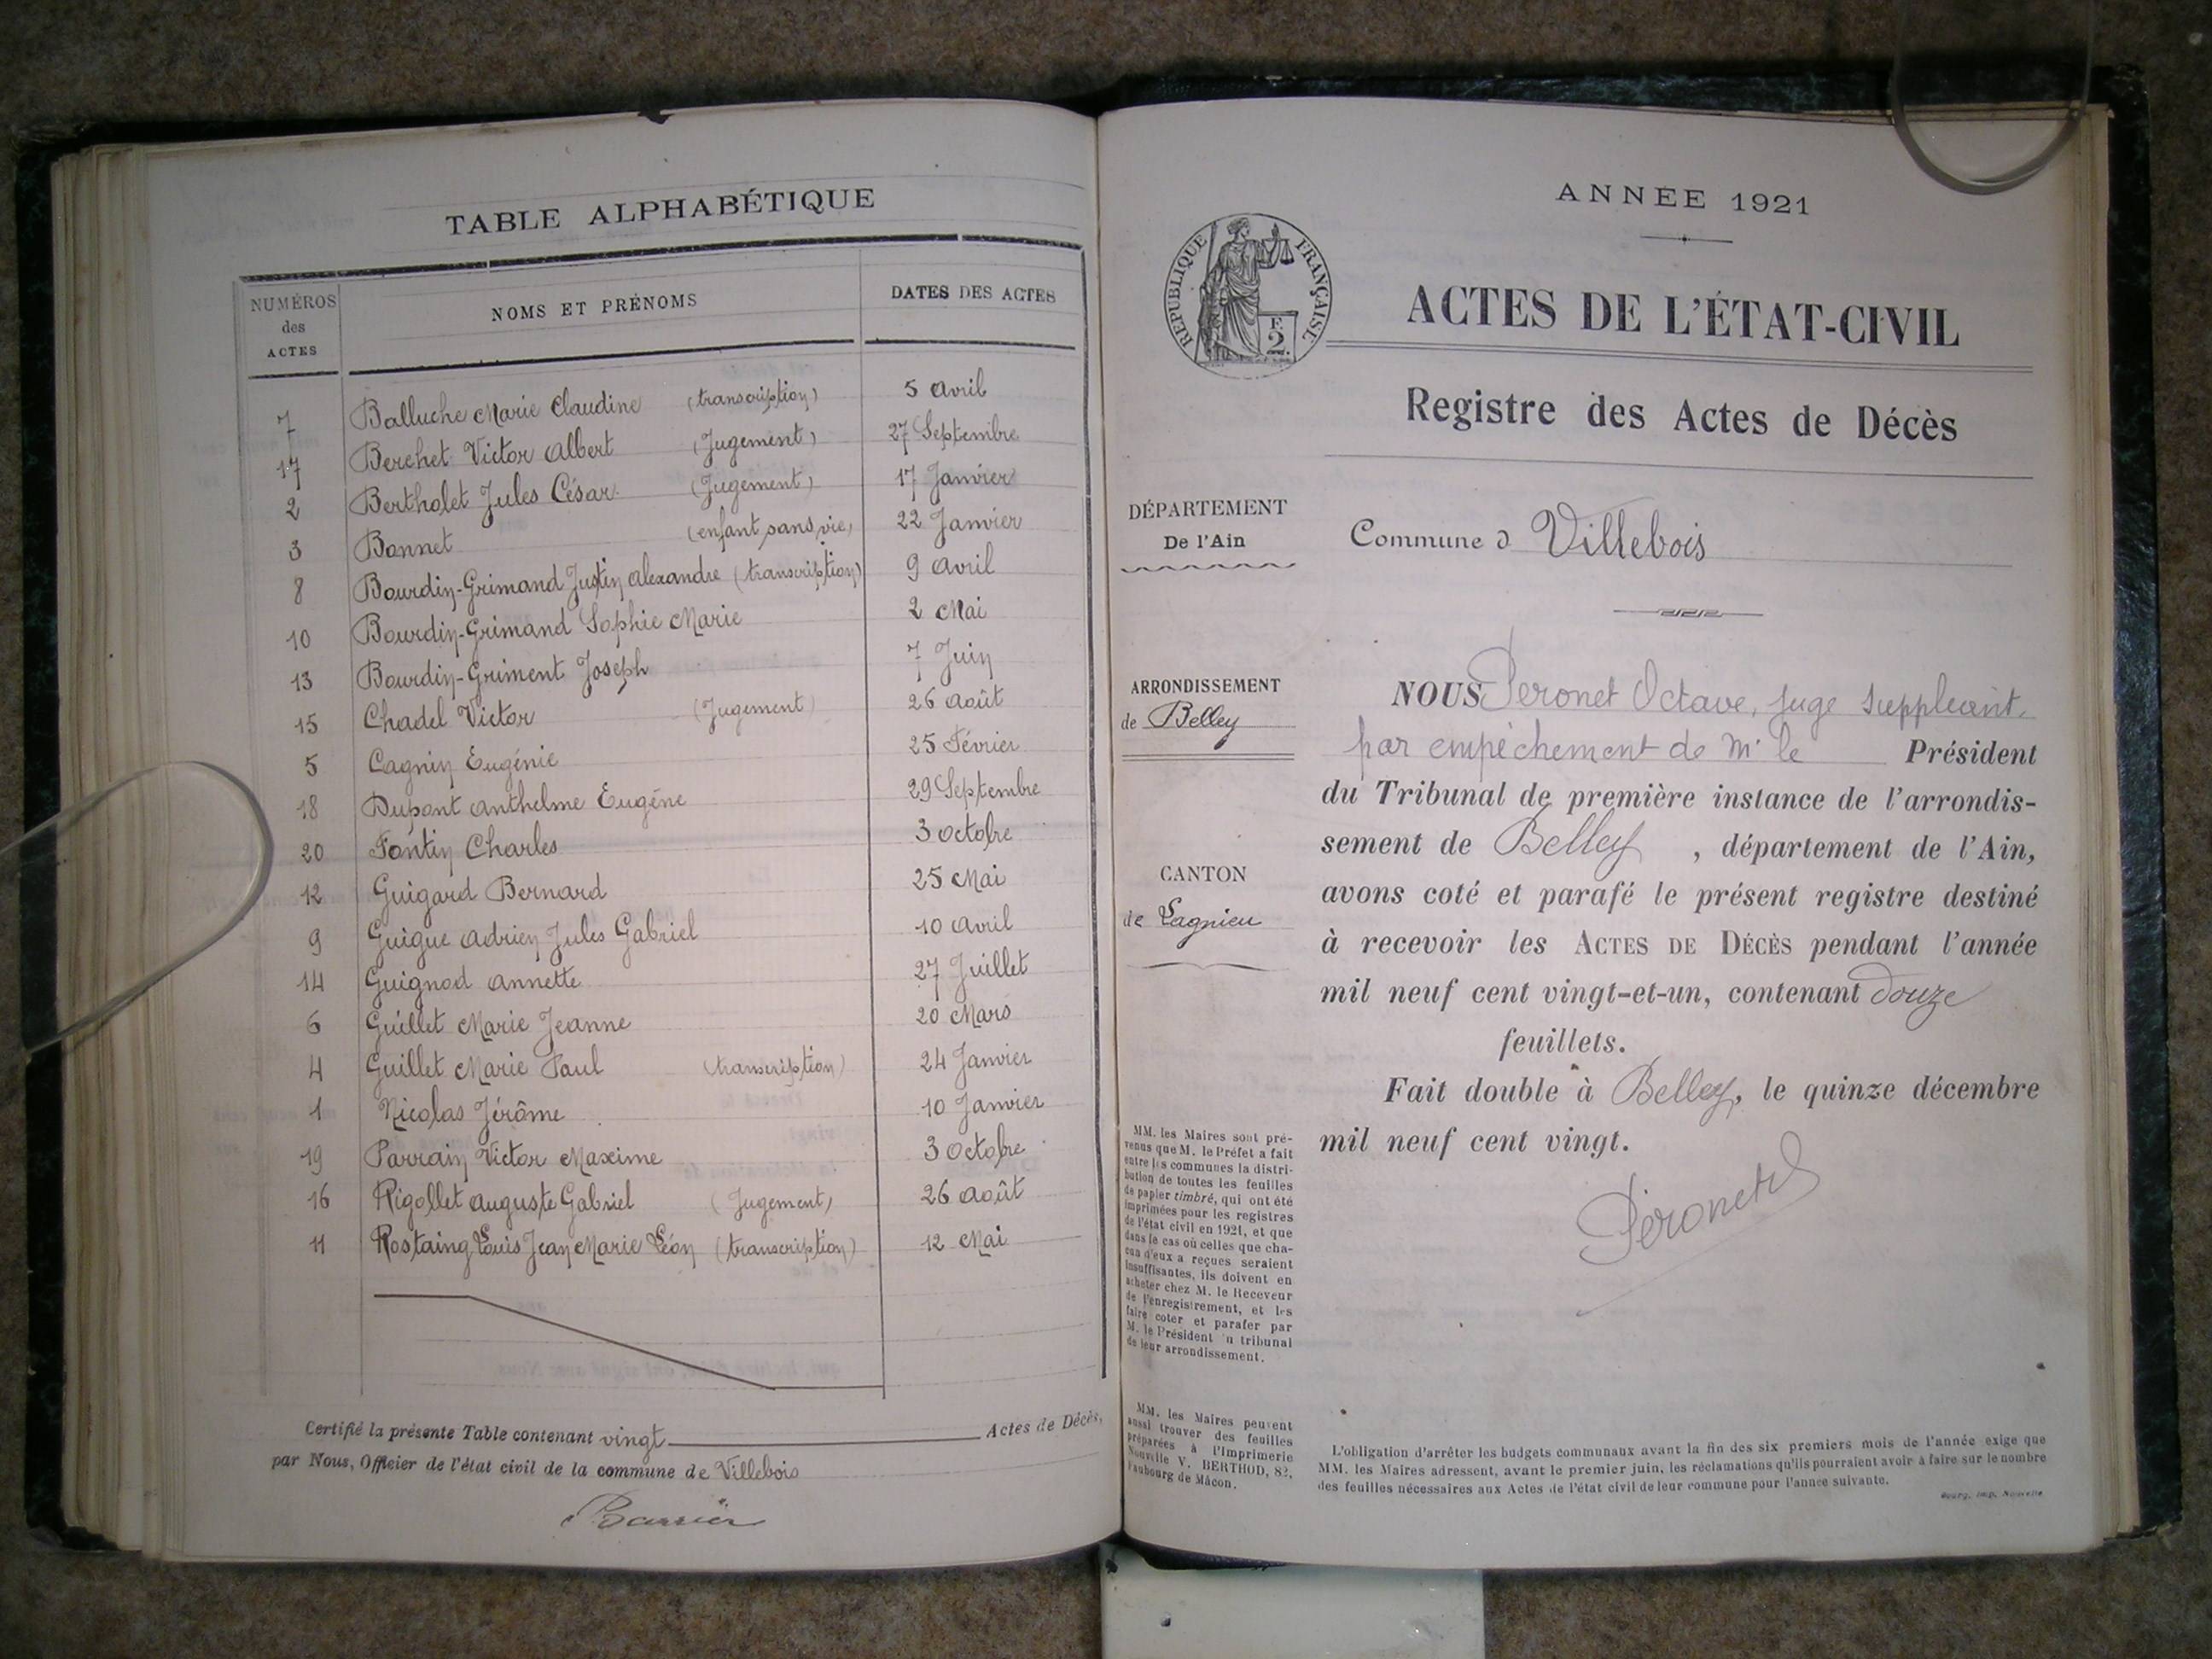 TABLE ALPHABÉTIQUE
NUMÉROS des ACTES NOMS ET PRÉNOMS DATES DES ACTES
7 Balluche Marie Claudine (transcription) 5 avril
17 Berchet Victor Albert (Jugement) 27 Septembre
2 Bertholet Jules César (Jugement) 17 Janvier
3 Bonnet (enfant sans vie) 22 Janvier
8 Bourdin-Grimand Justin Alexandre (transcription) 9 avril
10 Bourdin-Grimand Sophie Marie 2 Mai
13 Bourdin-Griment Joseph 7 Juin
15 Chadel Victor (Jugement) 26 août
5 Cagnin Eugénie 25 Février
18 Dupont Anthelme Eugène 29 Septembre
20 Fantin Charles 3 octobre
12 Guigard Bernard 25 Mai
9 Guigue Adrien Jules Gabriel 10 avril
14 Guignod Annette 27 Juillet
6 Guillet Marie Jeanne 20 Mars
4 Guillet Marie Paul (transcription) 24 Janvier
1 Nicolas Jérôme 10 Janvier
19 Parrain Victor Maxime 3 Octobre
16 Rigollet Auguste Gabriel (Jugement) 26 août
11 Rostaing Louis Jean Marie Léon (transcription) 12 Mai
Certifié la présente Table contenant vingt Actes de Décès,
par Nous, Officier de l'état civil de la commune de Villebois
Barrier
ANNÉE 1921
RÉPUBLIQUE FRANÇAISE
F.
2.
ACTES DE L'ÉTAT-CIVIL
Registre des Actes de Décès
DÉPARTEMENT
De l'Ain
Commune d Villebois
ARRONDISSEMENT
de Belley
CANTON
de Lagnieu
NOUS Peronet Octave, juge suppléant,
par empêchement de Mr le Président
du Tribunal de première instance de l'arrondis-
sement de Belley, département de l'Ain,
avons coté et parafé le présent registre destiné
à recevoir les ACTES DE DÉCÈS pendant l'année
mil neuf cent vingt-et-un, contenant douze
feuillets.
Fait double à Belley, le quinze décembre
mil neuf cent vingt.
Péronet
MM. les Maires sont pré-
venus que M. le Préfet a fait
entre les communes la distri-
bution de toutes les feuilles
de papier timbré, qui ont été
imprimées pour les registres
de l'état civil en 1921, et que
dans le cas où celles que cha-
cun d'eux a reçues seraient
insuffisantes, ils doivent en
acheter chez M. le Receveur
de l'enregistrement, et les
faire coter et parafer par
M. le Président du tribunal
de leur arrondissement.
MM. les Maires peuvent
aussi trouver des feuilles
préparées à l'Imprimerie
Nouvelle V. BERTHOD, 82,
Faubourg de Mâcon.
L'obligation d'arrêter les budgets communaux avant la fin des six premiers mois de l'année exige que
MM. les Maires adressent, avant le premier juin, les réclamations qu'ils pourraient avoir à faire sur le nombre
des feuilles nécessaires aux Actes de l'état civil de leur commune pour l'année suivante.
Bourg, Imp. Nouvelle